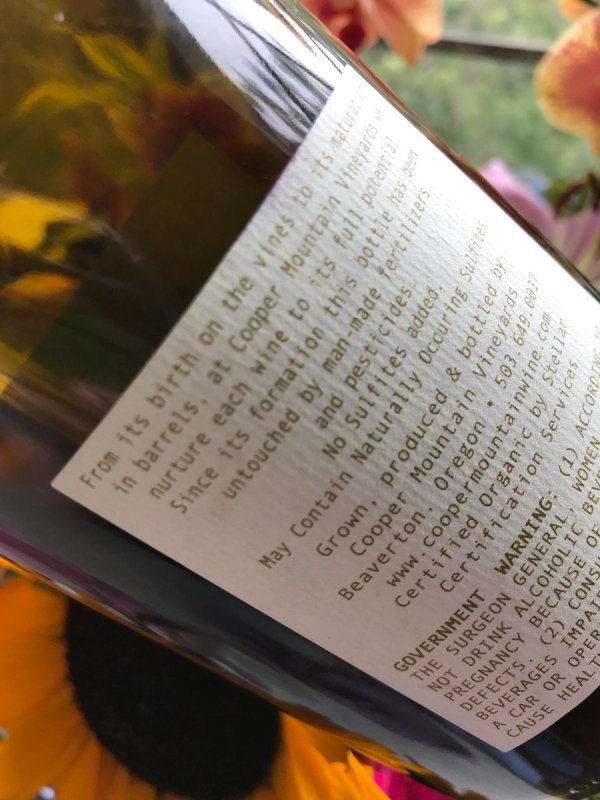 From its birth on the vines to its natural
in barrels, at Cooper Mountain Vineyards we
nurture each wine to its full potential.
Since its formation this bottle has been
untouched by man-made fertilizers
and pesticides.
No Sulfites added.
May Contain Naturally Occuring Sulfites.
Grown, produced & bottled by
Cooper Mountain Vineyards
Beaverton, Oregon • 503.649.0027
www.coopermountainwine.com
Certified Organic by Stellar
Certification Services
GOVERNMENT WARNING: (1) ACCORDING TO
THE SURGEON GENERAL, WOMEN
NOT DRINK ALCOHOLIC BEV
PREGNANCY BECAUSE OF
DEFECTS. (2) CONS
BEVERAGES IMPAI
A CAR OR OPER
CAUSE HEALTH